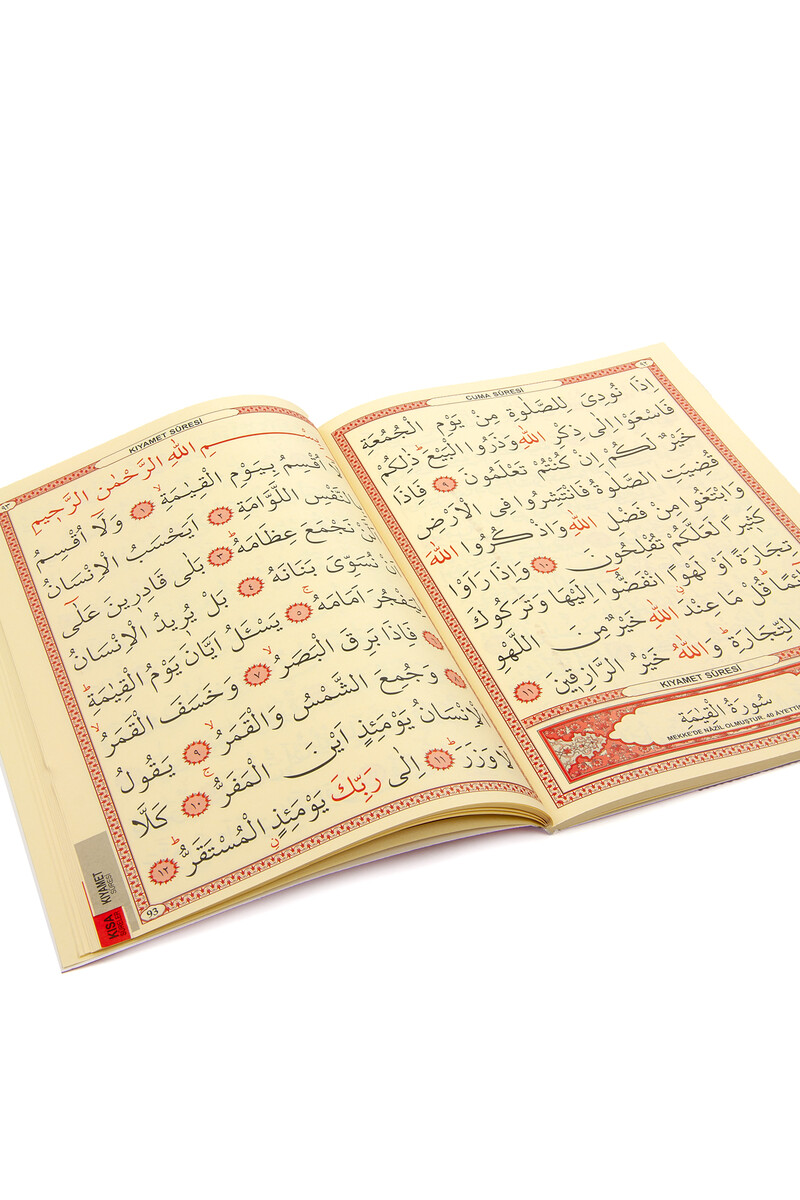 ٩٢
CUMA SÛRESİ
اِذَا نُودِىَ لِلصَّلٰوةِ مِنْ يَوْمِ الْجُمُعَةِ
فَاسْعَوْا اِلٰى ذِكْرِ اللّٰهِ وَذَرُوا الْبَيْعَ ذٰلِكُمْ
خَيْرٌ لَكُمْ اِنْ كُنْتُمْ تَعْلَمُونَ ٩ فَاِذَا
قُضِيَتِ الصَّلٰوةُ فَانْتَشِرُوا فِى الْاَرْضِ
وَابْتَغُوا مِنْ فَضْلِ اللّٰهِ وَاذْكُرُوا اللّٰهَ
كَثِيرًا لَعَلَّكُمْ تُفْلِحُونَ ١٠ وَاِذَا رَاَوْا
تِجَارَةً اَوْ لَهْوًا ۨانْفَضُّٓوا اِلَيْهَا وَتَرَكُوكَ
قَٓائِمًا قُلْ مَا عِنْدَ اللّٰهِ خَيْرٌ مِنَ اللَّهْوِ
التِّجَارَةِ وَاللّٰهُ خَيْرُ الرَّازِقِينَ ١١
KIYAMET SÛRESİ
سُورَةُ الْقِيٰمَةِ
MEKKE'DE NÂZİL OLMUŞTUR. 40 ÂYETTİR
٩٣
KIYAMET SÛRESİ
اللّٰهِ الرَّحْمٰنِ الرَّحِيمِ
اُقْسِمُ بِيَوْمِ الْقِيٰمَةِ ١ وَلَٓا اُقْسِمُ
النَّفْسِ اللَّوَّامَةِ ٢ اَيَحْسَبُ الْاِنْسَانُ
نَجْمَعَ عِظَامَهُ ٣ بَلٰى قَادِرِينَ عَلٰٓى
نُسَوِّىَ بَنَانَهُ ٤ بَلْ يُرِيدُ الْاِنْسَانُ
لِيَفْجُرَ اَمَامَهُ ٥ يَسْـَٔلُ اَيَّانَ يَوْمُ الْقِيٰمَةِ
فَاِذَا بَرِقَ الْبَصَرُ ٧ وَخَسَفَ الْقَمَرُ
وَجُمِعَ الشَّمْسُ وَالْقَمَرُ ٩ يَقُولُ
الْاِنْسَانُ يَوْمَئِذٍ اَيْنَ الْمَفَرُّ ١٠ كَلَّا
لَا وَزَرَ ١١ اِلٰى رَبِّكَ يَوْمَئِذٍ ۨالْمُسْتَقَرُّ ١٢
93
KIYAMET
SÛRESİ
KISA
SÛRELER